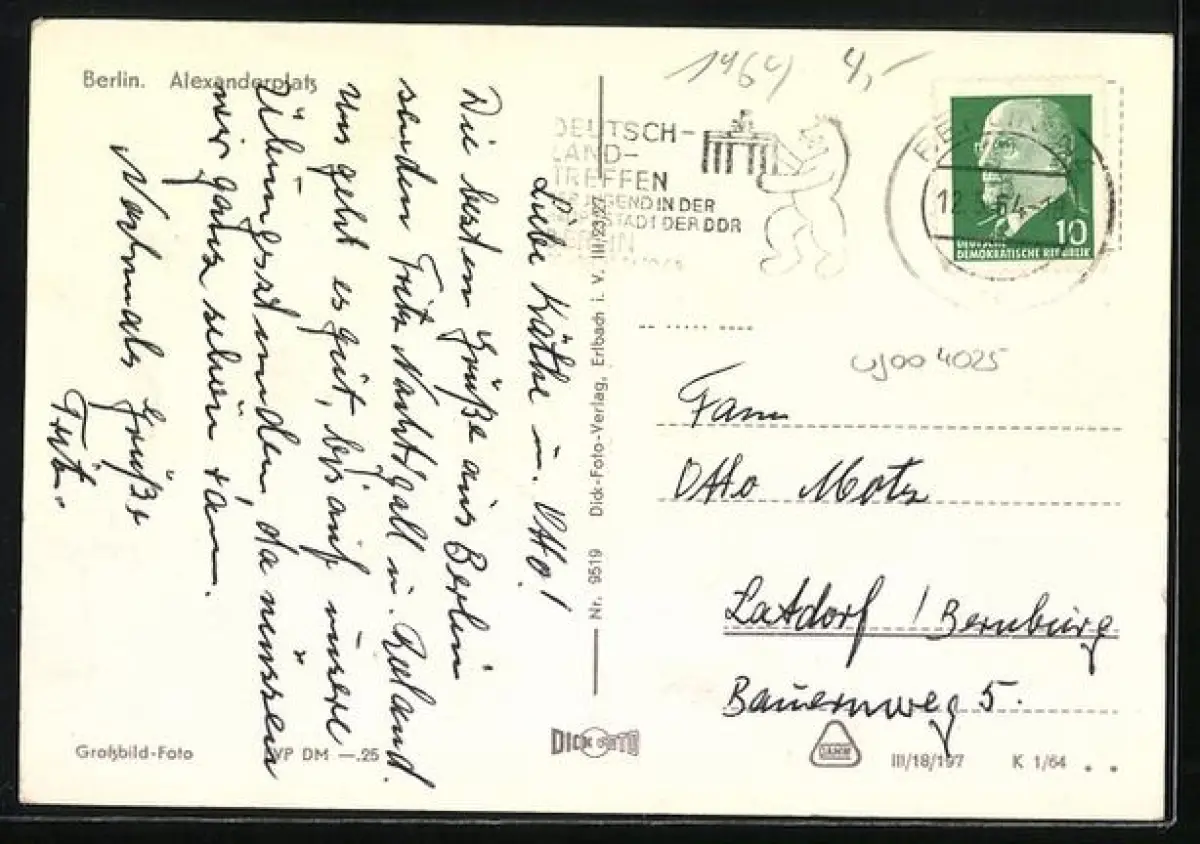 Berlin. Alexanderplatz
Liebe Käthe u. Otto!
Die besten Grüße aus Berlin
senden Fritz Nachtigall u. Roland.
Uns geht es gut, bis auf unsere
Übungsstunden, da müssen
wir ganz schön ran.
Nochmals Grüße
Fritz.
Großbild-Foto
VP DM —.25
Nr. 9519 Dick-Foto-Verlag, Erlbach i. V. III/23/27
DICK FOTO
1964 4,-
DEUTSCH-
LAND-
TREFFEN
JUGEND IN DER
HAUPTSTADT DER DDR
BERLIN
BERLIN
12. 64
10
DEUTSCHE
DEMOKRATISCHE REPUBLIK
4025
Fam
Otto Motz
Latdorf / Bernburg
Bauernweg 5.
III/18/197 K 1/64